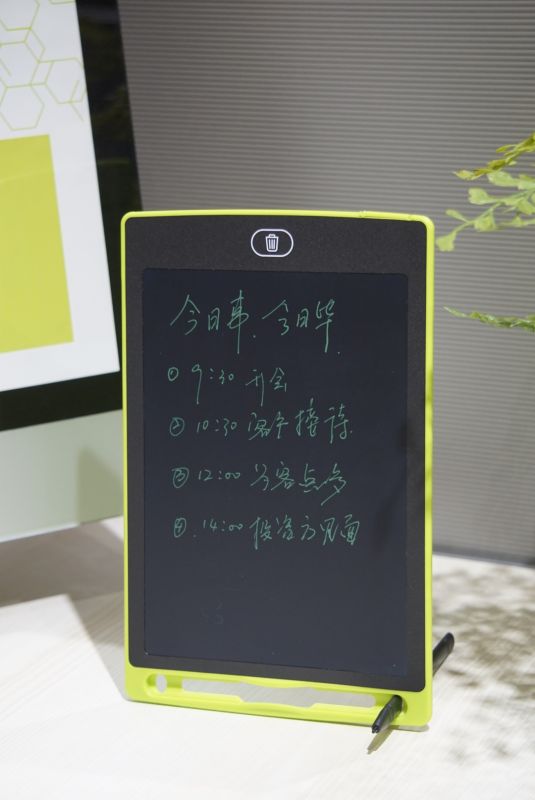 今日事、今日毕.
① 9:30 开会
② 10:30 客户接待.
③ 12:00 客点
④ 14:00 投资方见面